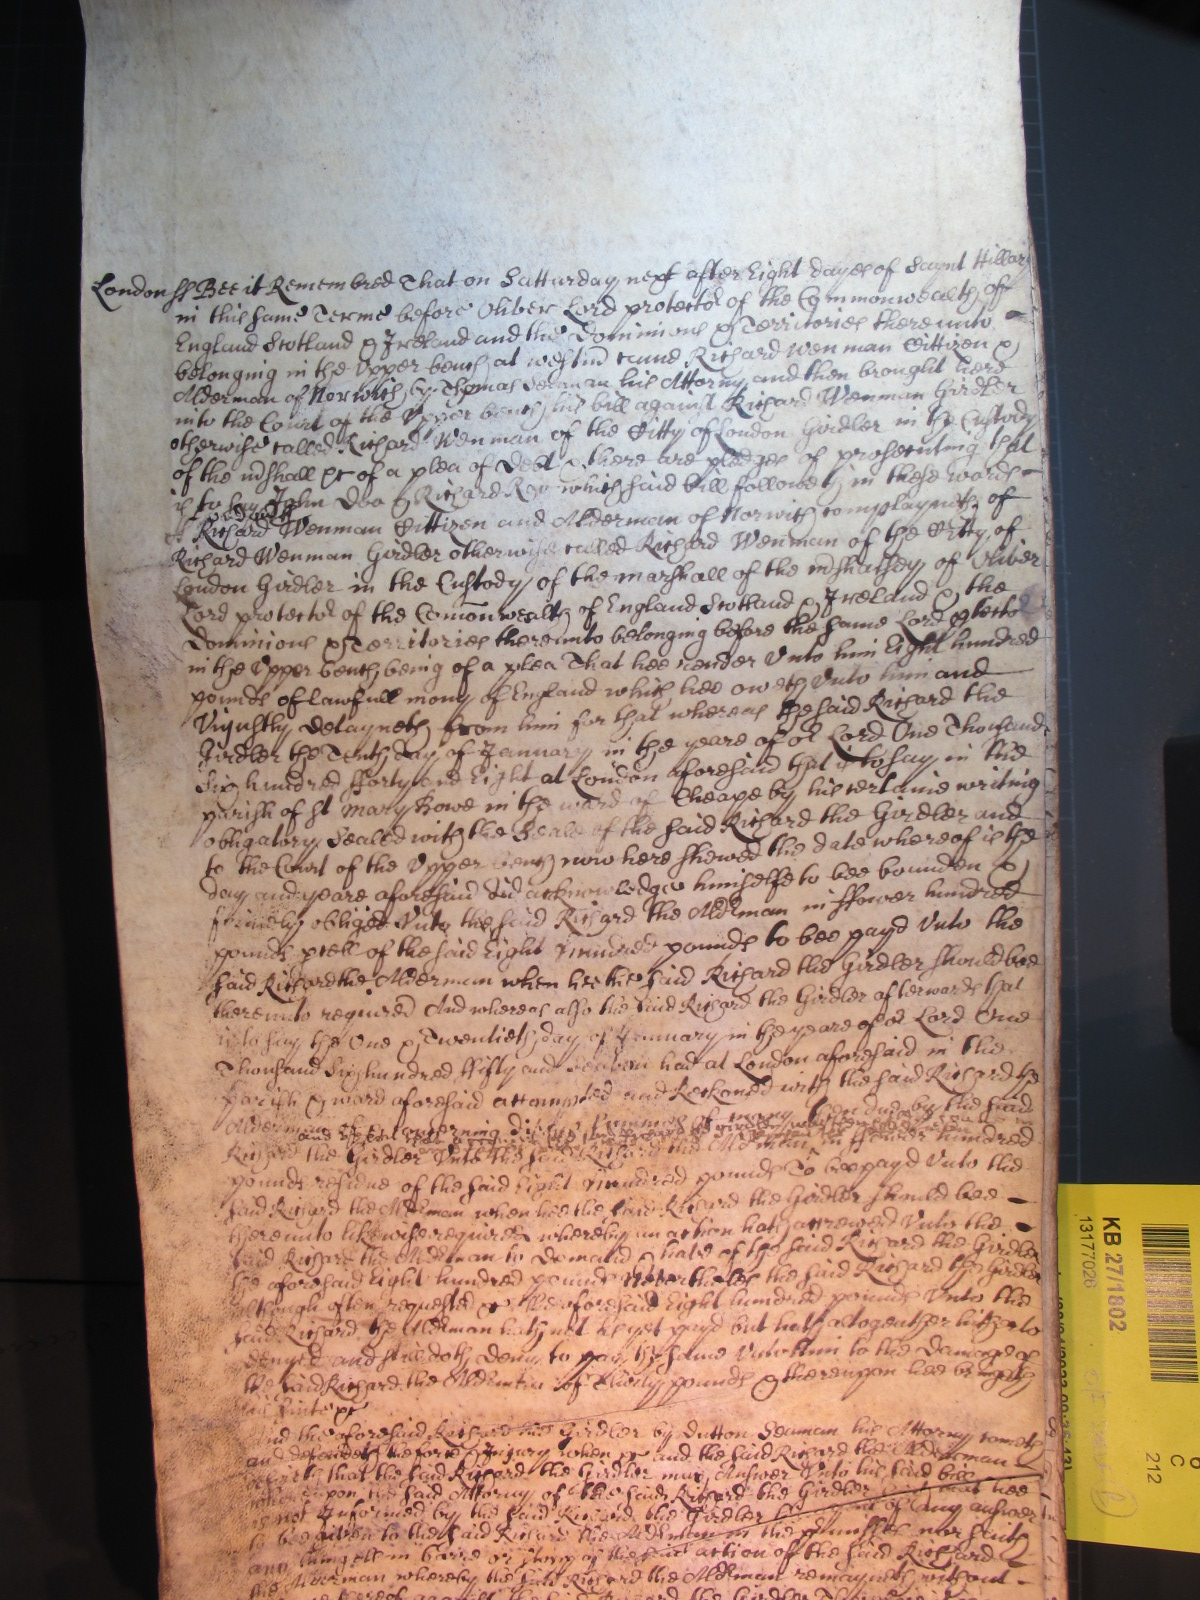 London ss Bee it Remembred That on Satturday next after Eight dayes of Saynt Hillary
in this same Terme before Oliver Lord protector of the Commonwealth of
England Scotland & Ireland and the Dominions & Territories thereunto
belonging in the Upper bench at westm came Richard Wenman Cittizen &
Alderman of Norwich by Thomas Seaman his Attorny and then brought here
into the Court of the Upper bench his bill against Richard Wenman Girdler
otherwise called Richard Wenman of the Citty of London Girdler in the Custody
of the mshall &c of a plea of Debt & there are pledges of prosecuting that
is to say John Doo & Richard Roo which said bill followeth in these words
Richard Wenman Cittizen and Alderman of Norwich complayneth of
Richard Wenman Girdler otherwise called Richard Wenman of the Citty of
London Girdler in the Custody of the marshall of the mshalsey of Oliver
Lord protector of the Comonwealth of England Scotland & Ireland & the
Dominions & Territories thereunto belonging before the same Lord ptector
in the Upper bench being of a plea That hee render Unto him Eight hundred
pounds of lawfull mony of England which hee oweth Unto him and
Uniustly detayneth from him for that whereas the said Richard the
Girdler the Tenth day of January in the yeare of or Lord One Thousand
Six hundred fforty and Eight at London aforesaid that is to say in the
parish of St Mary Bowe in the ward of Cheape by his certaine writing
obligatory Sealed with the Seale of the said Richard the Girdler and
to the Court of the Upper bench now here shewed the date whereof is the
day and yeare aforesaid did acknowledge himselfe to bee bounden &
firmely obliged Unto the said Richard the Aldman in ffower hundred
pounds pcell of the said Eight hundred pounds to bee payd Unto the
said Richard the Alderman when hee the said Richard the Girdler should bee
thereunto required And whereas also the said Richard the Girdler afterwards that
is to say the One & Twentieth day of January in the yeare of or Lord One
Thousand Six hundred ffifty and Seaven had at London aforesaid in the
parish & ward aforesaid accompted and Reckoned with the said Richard the
Alderman of and concerning divers Summes of mony due by the said
Richard the Girdler Unto the said Richard the Alderman in ffower hundred
pounds residue of the said Eight hundred pounds To bee payd Unto the
said Richard the Aldman when hee the said Richard the Girdler should bee
thereunto likewise required whereby an action hath accrewed Unto the
said Richard the Alderman to demand & have of the said Richard the Girdler
the aforesaid Eight hundred pounds Neverthelesse the said Richard the Girdler
although often requested &c the aforesaid Eight hundred pounds Unto the
said Richard the Alderman hath not as yet payd but hath altogeather hitherto
denyed and still doth deny to pay the same Unto him to the damage of
the said Richard the Alderman of pounds & thereupon hee bringeth
his suite &c
And the aforesaid Richard the Girdler by Dutton Seaman his Attorny cometh
and defendeth the force & Iniury when &c and the said Richard the Alderman
that the said Richard the Girdler may Answer Unto his said bill
whereupon the said Attorny of the said Richard the Girdler that hee
is not Informed by the said Richard the Girdler of any answer
to bee given to the said Richard the Alderman in the pmisses nor saith
any thing else in barre or stay of the said action of the said Richard
the Alderman whereby the said Richard the Aldman remayneth without
KB 27/1802
13177026
C
212